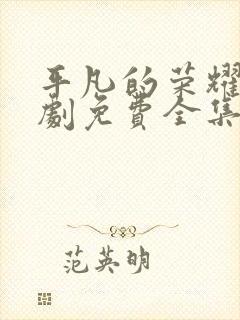 平凡的荣耀
劇免費全集
范英明